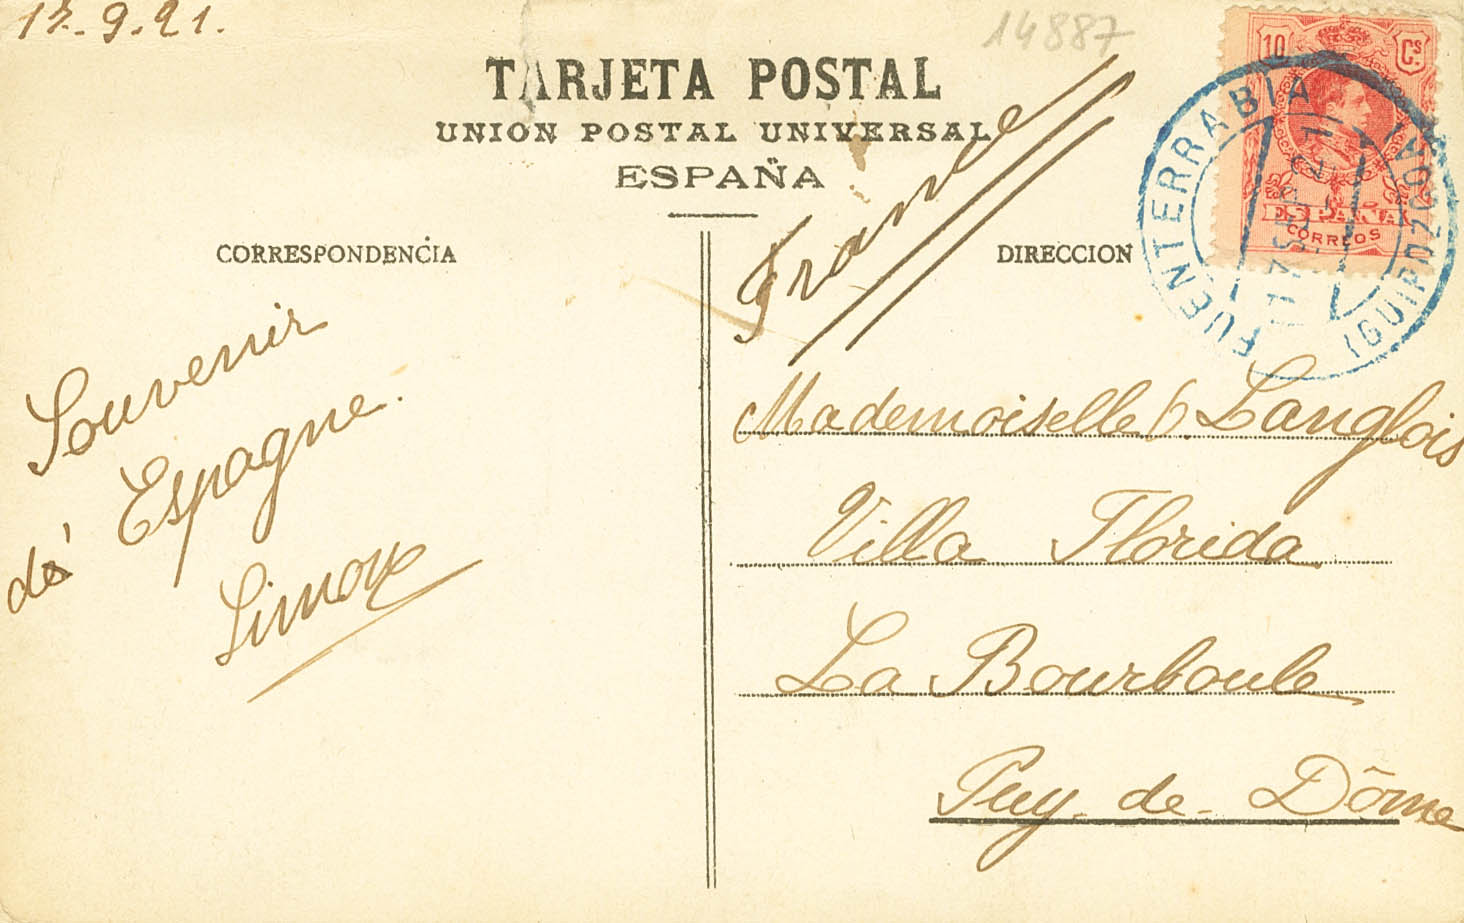 17.9.21.
14887
TARJETA POSTAL
UNION POSTAL UNIVERSAL
ESPAÑA
10 Cs.
ESPAÑA
CORREOS
FUENTERRABIA
(GUIPUZCOA)
CORRESPONDENCIA
DIRECCION
France
Souvenir
d' Espagne.
Simone
Mademoiselle Langlois
Villa Florida
La Bourboule
Puy-de-Dôme